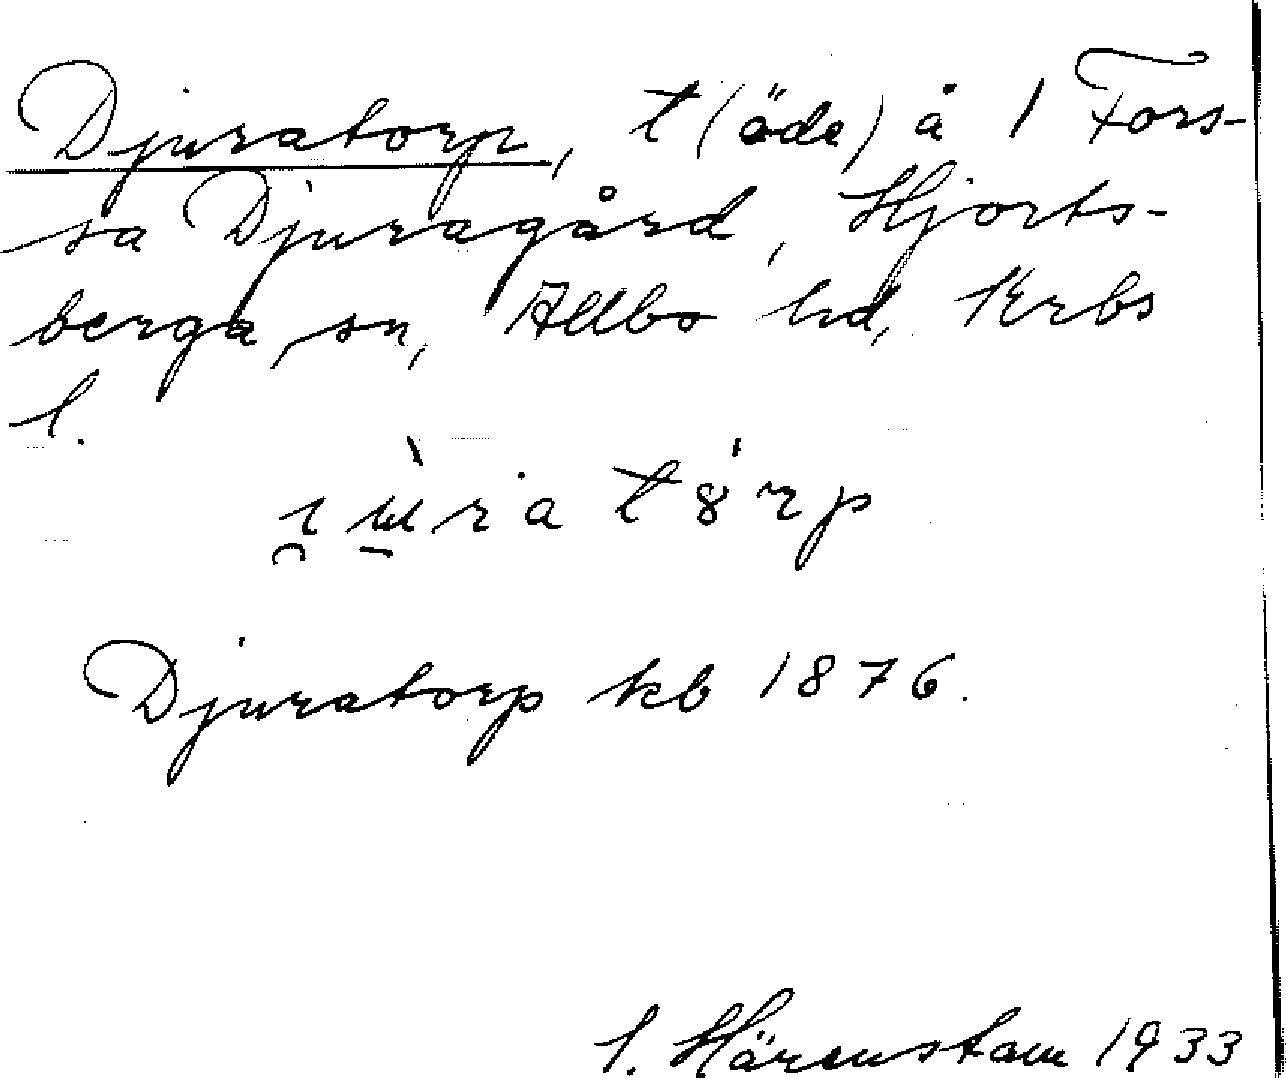 Djuratorp, t (öde) å 1 Fors-
sa Djuragård, Hjorts-
berga sn, Allbo hd, Krbs
l.
Djuratorp kb 1876.
Härenstam 1933